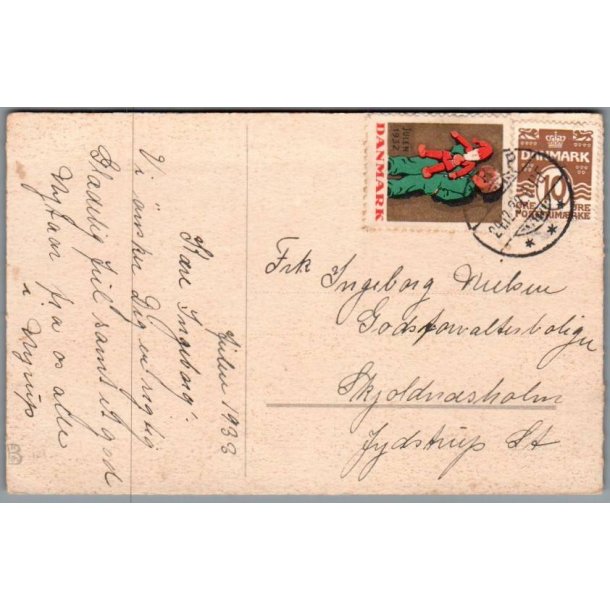 Julen 1933
Kære Ingeborg!
Vi ønsker Dig en rigtig
Glædelig Jul samt et god
Nytaar fra os alle
i Nyrup
JULEN
1932
DANMARK
DANMARK
10
ØRE ØRE
Frk Ingeborg Nielsen
Godsforvalterboligen
Skjoldnæsholm
Jydstrup St